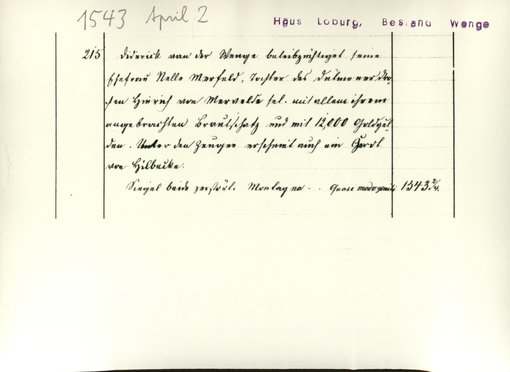 1543 April 2
Haus Loburg, Bestand Wenge
215 Diderick van der Wenge beleibzüchtiget seine
Ehefrau Nolle Merfeld, Tochter des Dülmener Dro-
sten Hinrich von Mervelde sel. mit allem ihrem
angebrachten Brautschatz und mit 12,000 Goldgül-
den. Unter den Zeugen erscheint auch ein Gerdt
von Hilbecke.
Siegel beide zerstört. Montag na . . Quasi modo geniti 1543. 2/4.